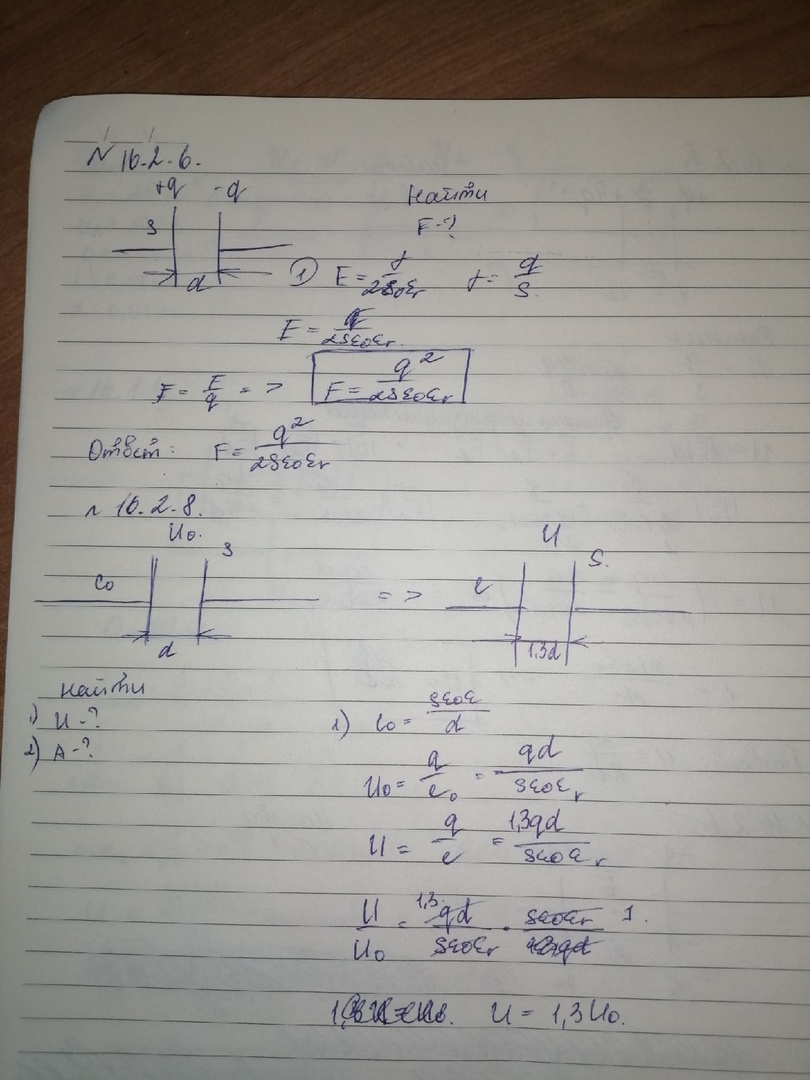 N 16.2.6.
+q -q
Найти
S
F-?
d
1) E = γ/2Sε₀εᵣ γ = q/S.
E = q/2Sε₀εᵣ
F = E/q => F = q²/2Sε₀εᵣ
Ответ: F = q²/2Sε₀εᵣ
N 16.2.8.
U₀. S
U S.
C₀ => C
d 1,3d
Найти
1) U-?
2) A-?
1) C₀ = Sε₀ε/d
U₀ = q/C₀ = qd/Sε₀εᵣ
U = q/C = 1,3qd/Sε₀εᵣ
U/U₀ = 1,3·qd/Sε₀εᵣ · Sε₀εᵣ
U = 1,3U₀.